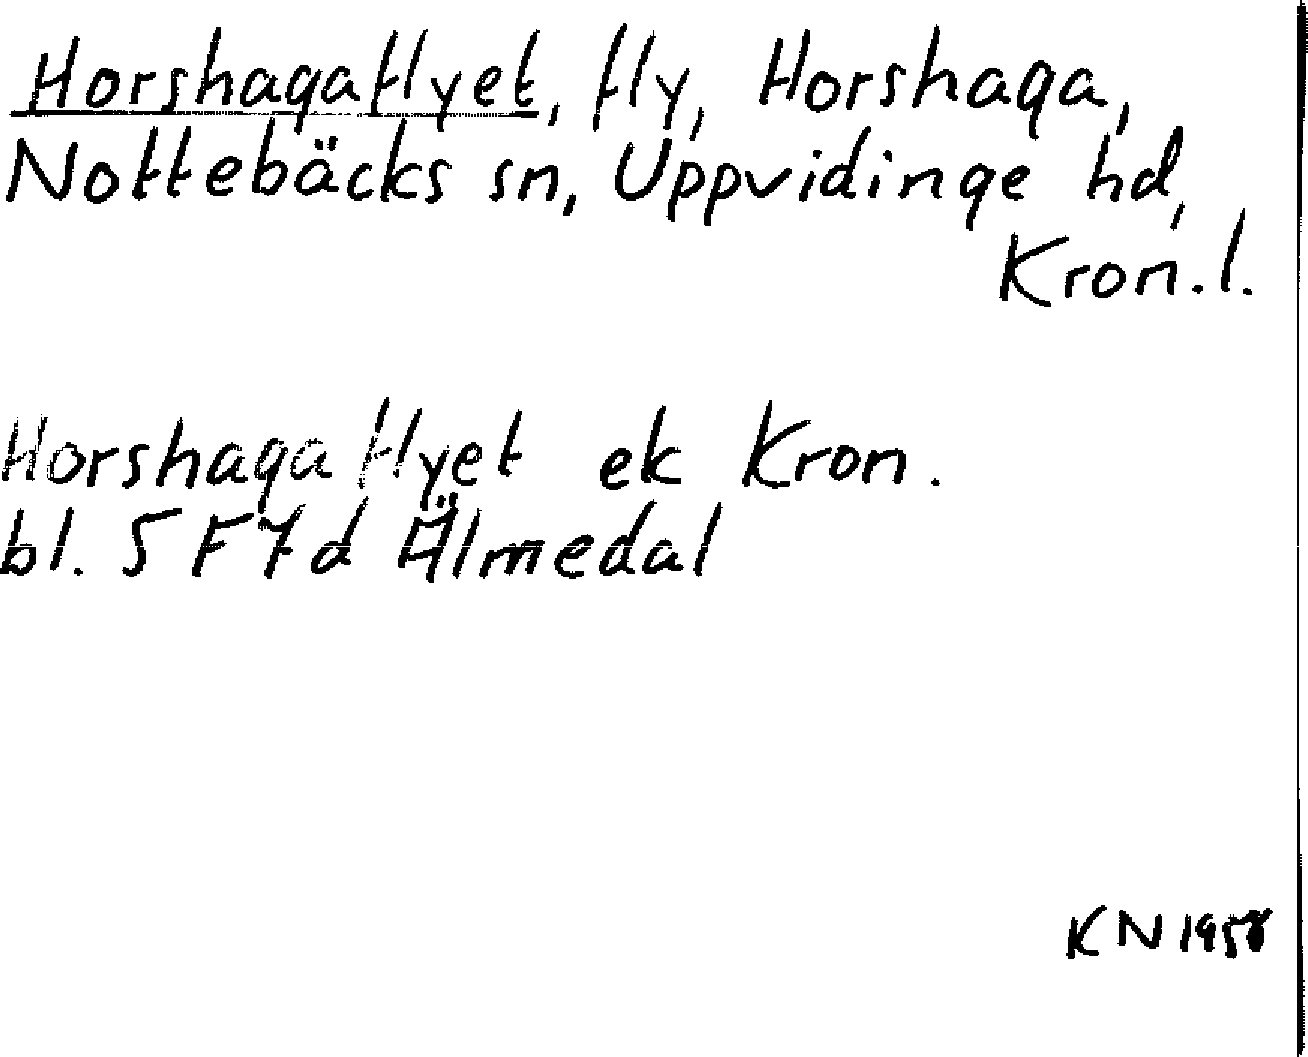 Horshagaflyet, fly, Horshaga,
Nottebäcks sn, Uppvidinge hd,
Kron.l.
Horshagaflyet ek Kron.
bl. 5 F 7 d Älmedal
KN 1958